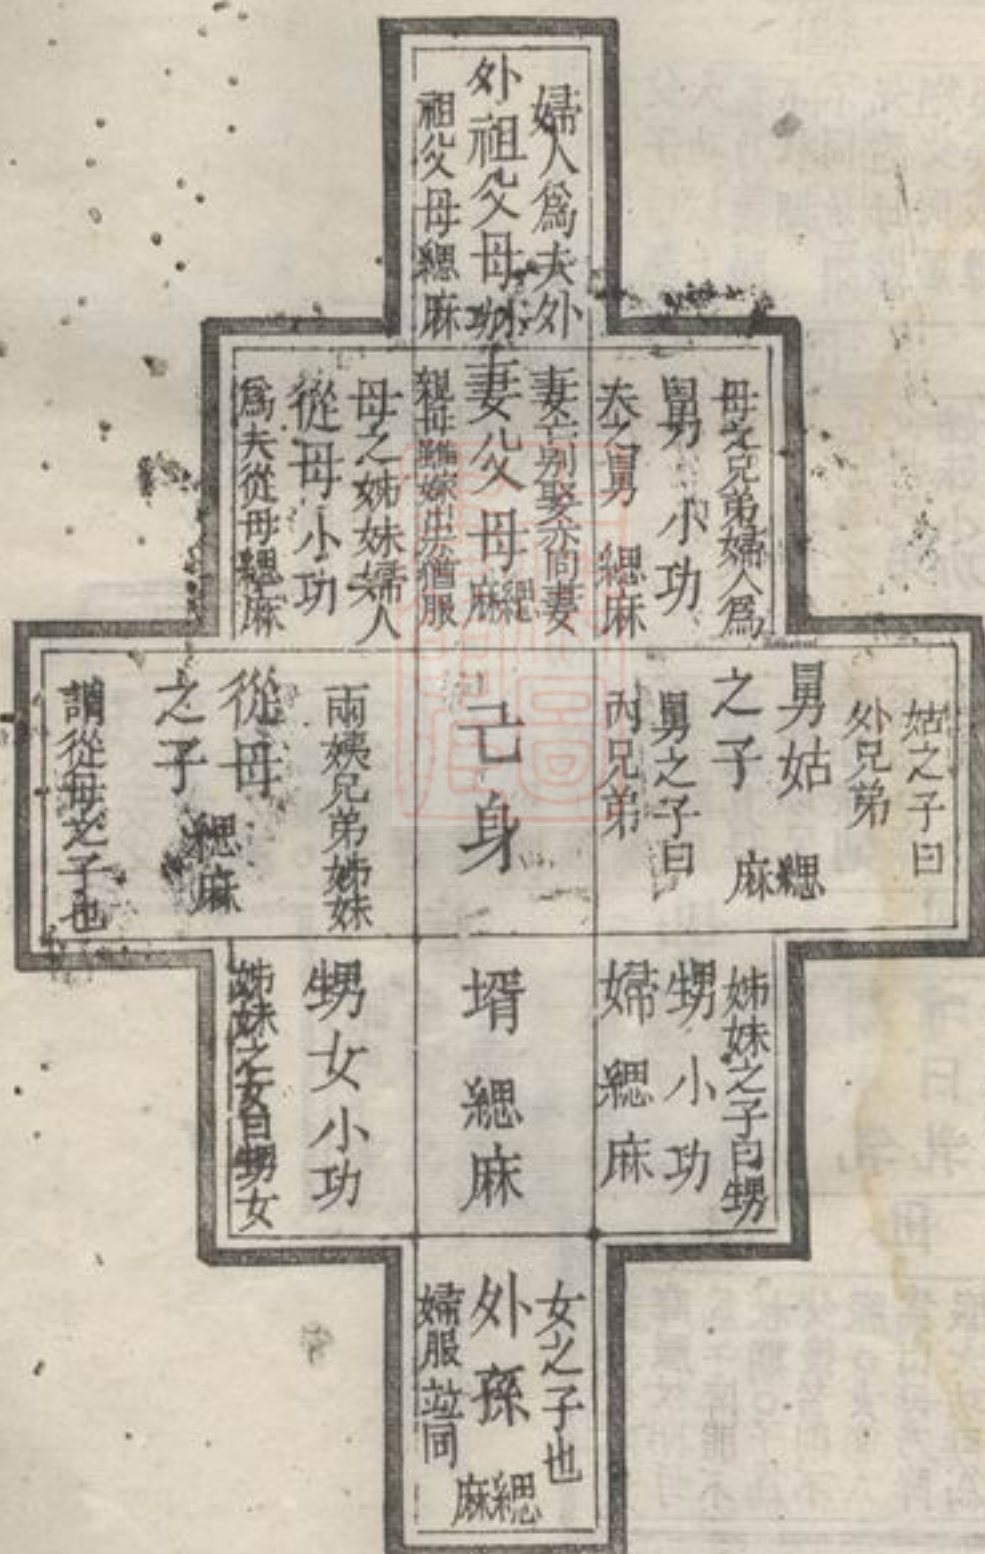 婦人爲夫外
外祖父母小功
祖父母緦麻
母之兄弟婦人爲
舅小功
夫之舅緦麻
妻亡別娶亦同妻
妻父母緦麻
親母雖嫁出猶服
母之姊妹婦人
從母小功
爲夫從母緦麻
姑之子曰
外兄弟
舅姑
之子緦麻
舅之子曰
內兄弟
亡身
兩姨兄弟姊妹
從母
之子緦麻
謂從母之子也
姊妹之子曰甥
甥小功
婦緦麻
壻緦麻
甥女小功
姊妹之女曰甥女
女之子也
外孫緦麻
婦服並同